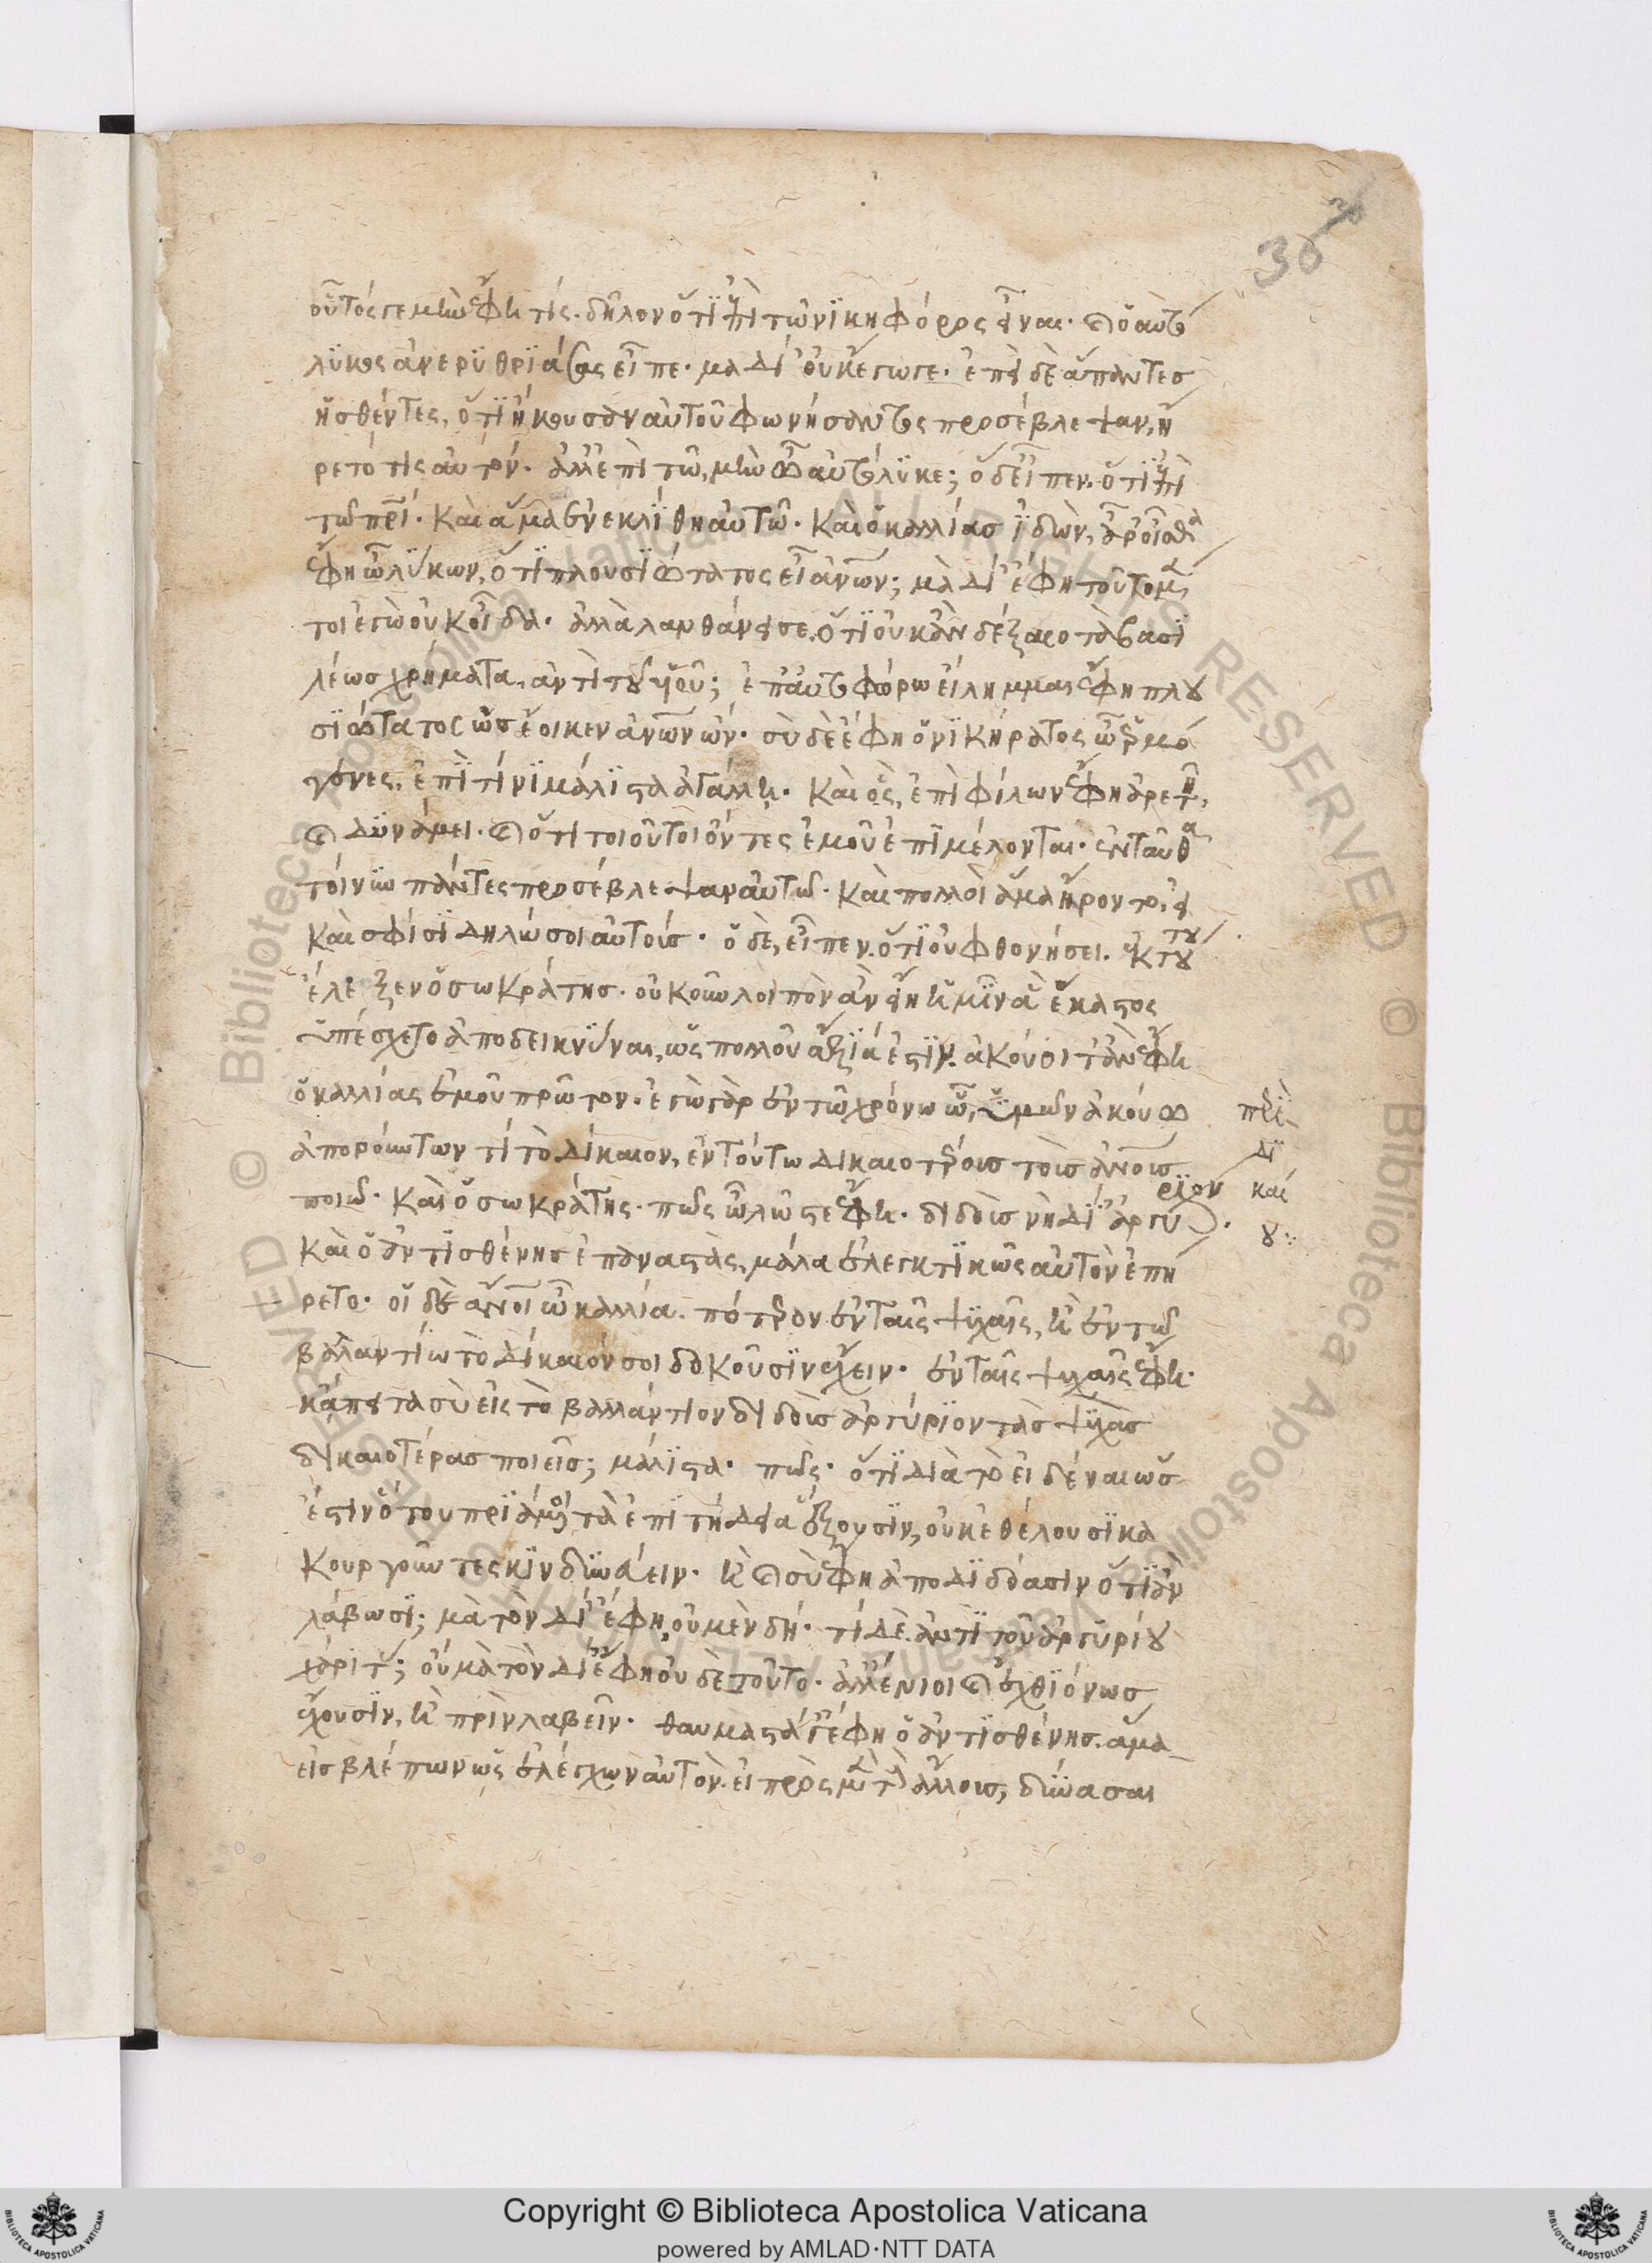 30
οὗτός γε μὴν ἔφη τίς. δῆλον ὅτι ἐπὶ τῷ νικηφόρος εἶναι. καὶ ὁ αὐτό
λυκος ἀνερυθριάσας εἶπε. μὰ δί' οὐκ ἔγωγε. ἐπεὶ δὲ ἅπαντες
ἡσθέντες, ὅτι ἤκουσαν αὐτοῦ φωνήσαντος προσέβλεψαν, ἤ
ρετό τις αὐτόν. ἀλλ' ἐπὶ τῷ μὴν ὦ αὐτόλυκε; ὁ δ' εἶπεν. ὅτι ἐπὶ
τῷ πρί. καὶ ἅμα συνεκλίθη αὐτῷ. καὶ ὁ καλλίας ἰδὼν, ἆρ' οἶσθα
ἔφη ὦ λύκων, ὅτι πλουσιώτατος εἶ ἀνων; μὰ δί' ἔφη τοῦτο μέν
τοι ἐγὼ οὐκ οἶδα. ἀλλὰ λανθάνει σε, ὅτι οὐκ ἂν δέξαιο τὰ βασι
λέως χρήματα, ἀντὶ τοῦ υἱοῦ; ἐπ' αὐτοφώρω εἴλημμαι ἔφη πλου
σιώτατος ὡς ἔοικεν ἀνων ὤν. σὺ δὲ ἔφη ὁ νικήρατος ὦ ἑρμό
γενες, ἐπὶ τίνι μάλιστα ἀγάλλη. καὶ ὃς, ἐπὶ φίλων ἔφη ἀρετῇ,
καὶ δυνάμει. καὶ ὅτι τοιοῦτοι ὄντες ἐμοῦ ἐπιμέλονται. ἐνταῦθα
τοίνυν πάντες προσέβλεψαν αὐτῷ. καὶ πολλοὶ ἅμα ἤροντο, εἰ
καὶ σφίσι δηλώσοι αὐτοίς. ὁ δὲ, εἶπεν. ὅτι οὐ φθονήσει. ἐκ τού του
ἔλεξεν ὁ σωκράτης. οὐκοῦν λοιπὸν ἂν εἴη ἡμῖν ἃ ἕκαστος
ὑπέσχετο ἀποδεικνύναι, ὡς πολλοῦ ἄξιά ἐστιν. ἀκούοιτ' ἂν ἔφη
ὁ καλλίας ἐμοῦ πρῶτον. ἐγὼ γὰρ ἐν τῷ χρόνω ᾧ, ὑμῶν ἀκούω
ἀπορούντων τί τὸ δίκαιον, ἐν τούτω δικαιοτέροις τοὺς ἀνους
ποιῶ. καὶ ὁ σωκράτης. πῶς ὦ λῷστε ἔφη. διδοὺς νὴ δί' ἀργύ ριον.
καὶ ὁ ἀντισθένης ἐπαναστὰς, μάλα ἐλεγκτικῶς αὐτὸν ἐπή
ρετο. οἱ δὲ ἄνοι ὦ καλλία. πότερον ἐν ταῖς ψυχαῖς, ἢ ἐν τῷ
βαλλαντίω τὸ δίκαιόν σοι δοκοῦσιν ἔχειν. ἐν ταῖς ψυχαῖς ἔφη.
κάπειτα σὺ εἰς τὸ βαλλάντιον διδοὺς ἀργύριον τὰς ψυχὰς
δικαιοτέρας ποιεῖς; μάλιστα. πῶς. ὅτι διὰ τὸ εἰδέναι ὡς
ἔστιν ὅτου πριάμενοι τὰ ἐπιτήδεια ἕξουσιν, οὐκ ἐθέλουσι κα
κουργοῦντες κινδυνεύειν. ἦ καὶ σὺ ἔφη ἀποδιδόασιν ὅτι ἂν
λάβωσι; μὰ τὸν δί' ἔφη, οὐ μὲν δή. τί δὲ ἀντὶ τοῦ ἀργυρίου
χάριτας; οὐ μὰ τὸν δί' ἔφη οὐδὲ τοῦτο. ἀλλ' ἔνιοι καὶ ἐχθιόνως
ἔχουσιν, ἢ πρὶν λαβεῖν. θαυμαστά γ' ἔφη ὁ ἀντισθένης. ἅμα
εἰσβλέπων ὡς ἐλέγχων αὐτὸν. εἰ πρὸς μὲν τοὺς ἄλλους, δύνασαι
περὶ
δι
καί
ου
Copyright © Biblioteca Apostolica Vaticana
powered by AMLAD·NTT DATA